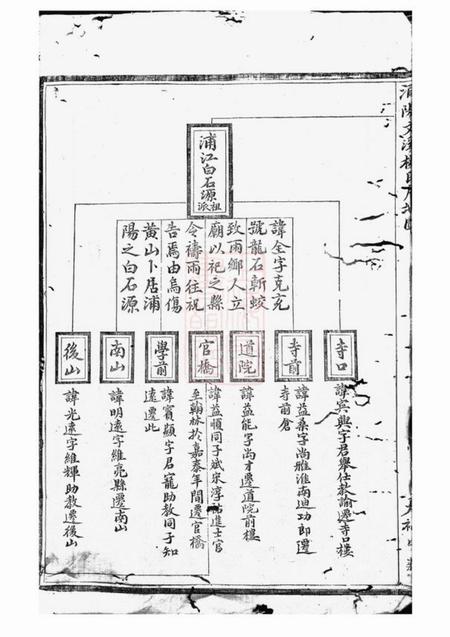 浦江白石源祖派
諱全字克充
號龍石斬蛟
致雨鄉人立
廟以祀之縣
令禱雨往祝
告焉由烏傷
黃山卜居浦
陽之白石源
寺口
諱賓興字君舉仕教諭遷寺口樓
寺前
諱益桑字尚雅淮南迪功即遷
寺前倉
道院
諱益能字尚才遷道院前樓
官橋
諱益順同子斌宋淳祐進士官
至翰林於嘉泰年間遷官橋
學前
諱賓顯字君寵助教同子知
遠遷此
南山
諱明遠字維亮縣遷南山
後山
諱光遠字維輝助教遷後山